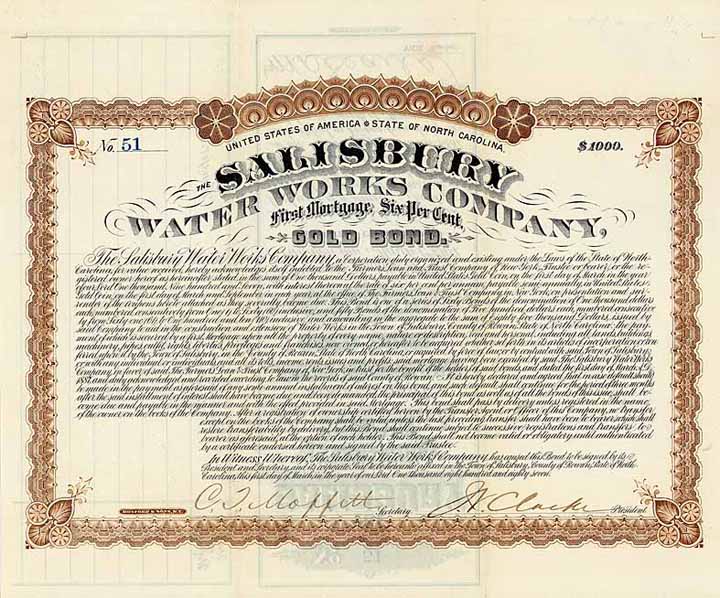 UNITED STATES OF AMERICA STATE OF NORTH CAROLINA.
No. 51
$1000.
THE SALISBURY
WATER WORKS COMPANY,
First Mortgage, Six Per Cent,
GOLD BOND.
The Salisbury Water Works Company, a corporation duly organized and existing under the Laws of the State of North
Carolina, for value received, hereby acknowledges itself indebted to the Farmers Loan and Trust Company of New York, Trustee or bearer, or the re-
gistered owner hereof as hereinafter stated, in the sum of One Thousand Dollars, payable in United States Gold Coin, on the first day of March in the year
of our Lord One Thousand, Nine Hundred and Seven, with interest thereon at the rate of six per cent per annum, payable semi annually in United States
Gold Coin, on the first days of March and September in each year, at the office of The Farmers Loan & Trust Company, in New York, on presentation and sur-
render of the coupons hereto attached as they severally become due. This Bond is one of a series of Sixty Bonds of the denomination of One thousand dollars
each, numbered consecutively from One (1) to Sixty (60) inclusive, and fifty Bonds of the denomination of Five hundred dollars each, numbered consecutive-
ly from Sixty one (61) to One hundred and Ten (110) inclusive, and amounting in the aggregate to the sum of Eighty five thousand Dollars, issued by
said Company to aid in the construction and extension of Water Works in the Town of Salisbury, County of Rowan, State of North Carolina. The pay-
ment of which is secured by a first Mortgage upon all the property of every name, nature or description, real and personal, including all lands, buildings,
machinery, pipes, outfit, rights, liberties, privileges and franchises, now owned or hereafter to be acquired whether set forth in its articles of incorporation or con-
ferred upon it by the Town of Salisbury, in the County of Rowan, State of North Carolina, or acquired by force of law or by contract with said Town of Salisbury,
or with any individuals or individual, and all its tolls, income, rents, issues and profits, said mortgage having been executed by said The Salisbury Water Works
Company, in favor of said The Farmers Loan & Trust Company of New York, in trust for the benefit of the holders of said bonds, and dated the first day of March, A.D.
1887, and duly acknowledged and recorded according to law in the records of said county of Rowan. It is hereby declared and agreed, that in case default shall
be made in the payment as aforesaid of any semi annual installment of interest on this bond, and such default shall continue for the period of three months
after the said installment of interest shall have become due and been duly demanded, the principal of this bond as well as of all the bonds of this issue, shall be-
come due and payable in the manner and with the effect provided in said Mortgage. This bond shall pass by delivery unless registered in the name
of the owner on the books of the Company. After a registration of ownership certified hereon by the Transfer Agent or Officer of this Company, no transfer
except on the books of the Company shall be valid unless the last preceding transfer shall have been to bearer, which shall
restore transferability by delivery, but this Bond shall continue subject to successive registrations and transfers to
bearer as aforesaid, at the option of each holder. This Bond shall not become valid or obligatory until authenticated
by a certificate endorsed hereon and signed by the said Trustee.
In Witness Whereof, The Salisbury Water Works Company has caused this Bond to be signed by its
President and Secretary, and its corporate Seal to be hereunto affixed in the Town of Salisbury, County of Rowan, State of North
Carolina, this first day of March, in the year of our Lord One thousand eight hundred and eighty seven.
C. T. Moffett Secretary. President.